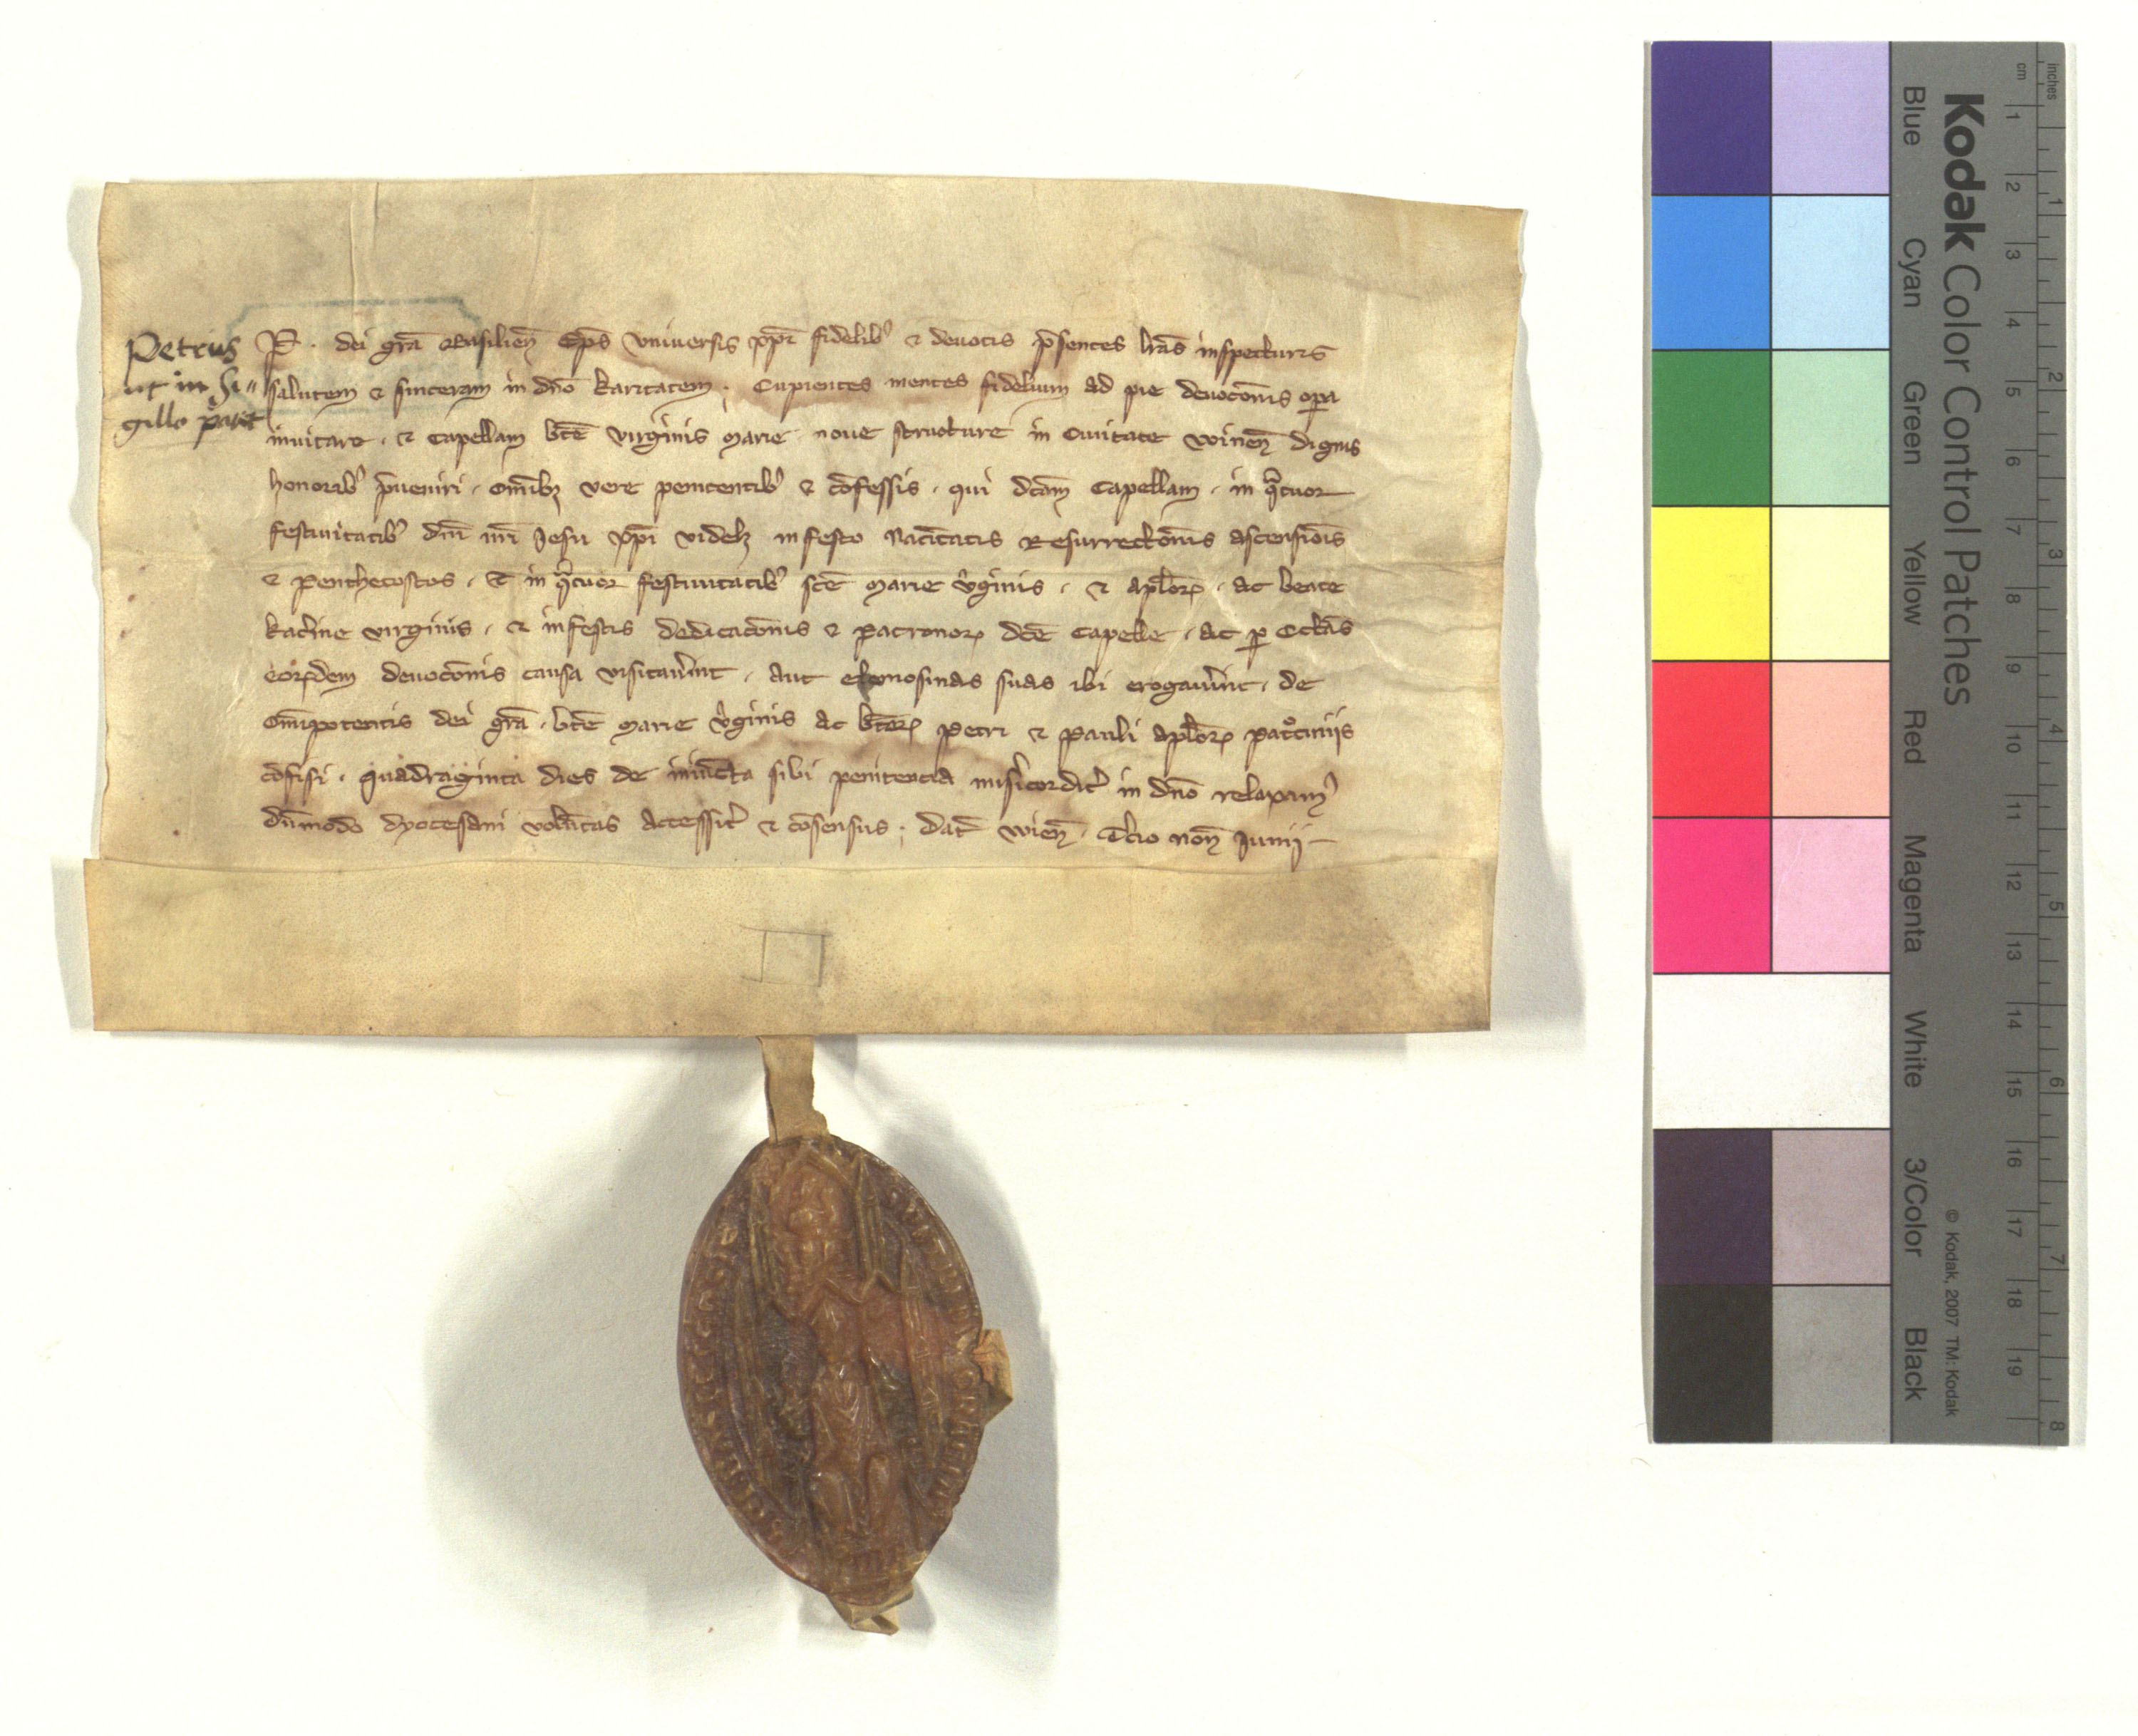 Petrus
ut in Si=
gillo patet
P. dei grã Basilieñ Ep̃s Vniuersis xp̃i fidelibꝰ & deuotis p̃sentes lr̃as inspecturis
salutem & sinceram in dño karitatem. Cupientes mentes fidelium ad pie deuoc̃onis oꝑa
inuitare. & Capellam bt̃e virginis marie noue structure in Ciuitate winneñ dignis
honoribꝰ p̃ueniri. Om̃ibꝫ vere penitentibꝰ & c̃ofessis. qui dc̃am Capellam. in q̃tuor
festiuitatibꝰ dñi nr̃i Jesu xp̃i videlꝫ in festo Natiĩtatis Resurrecc̃onis ascensiõis
& penthecostes. Et in q̃tuor festiuitatibꝰ sc̃e marie v̓ginis. & ap̃loꝝ. ac beate
kat̓ine virginis. & in festis dedicac̃onis & patronoꝝ dc̃e Capelle. ac ꝑ Octãs
eoꝝdem deuoc̃onis causa visitau̓int. aut elemosinas suas ibi erogau̓int. de
om̃ipotentis dei grã. bt̃e marie v̓ginis ac bt̃oꝝ petri & pauli ap̃loꝝ patᵒciniis
c̃ofisi. quadraginta dies de iniũcta sibi penitencia mis̓icordit̓ in dño relaxamꝰ
dũmodo dyocesani volũtas accessit̓ & c̃osensus; Dat̃ wieñ. T̓cio noñ Junij
Kodak Color Control Patches
Blue Cyan Green Yellow Red Magenta White 3/Color Black
© Kodak, 2007 TM: Kodak
cm 1 2 3 4 5 6 7 8 9 10 11 12 13 14 15 16 17 18 19
inches 1 2 3 4 5 6 7 8